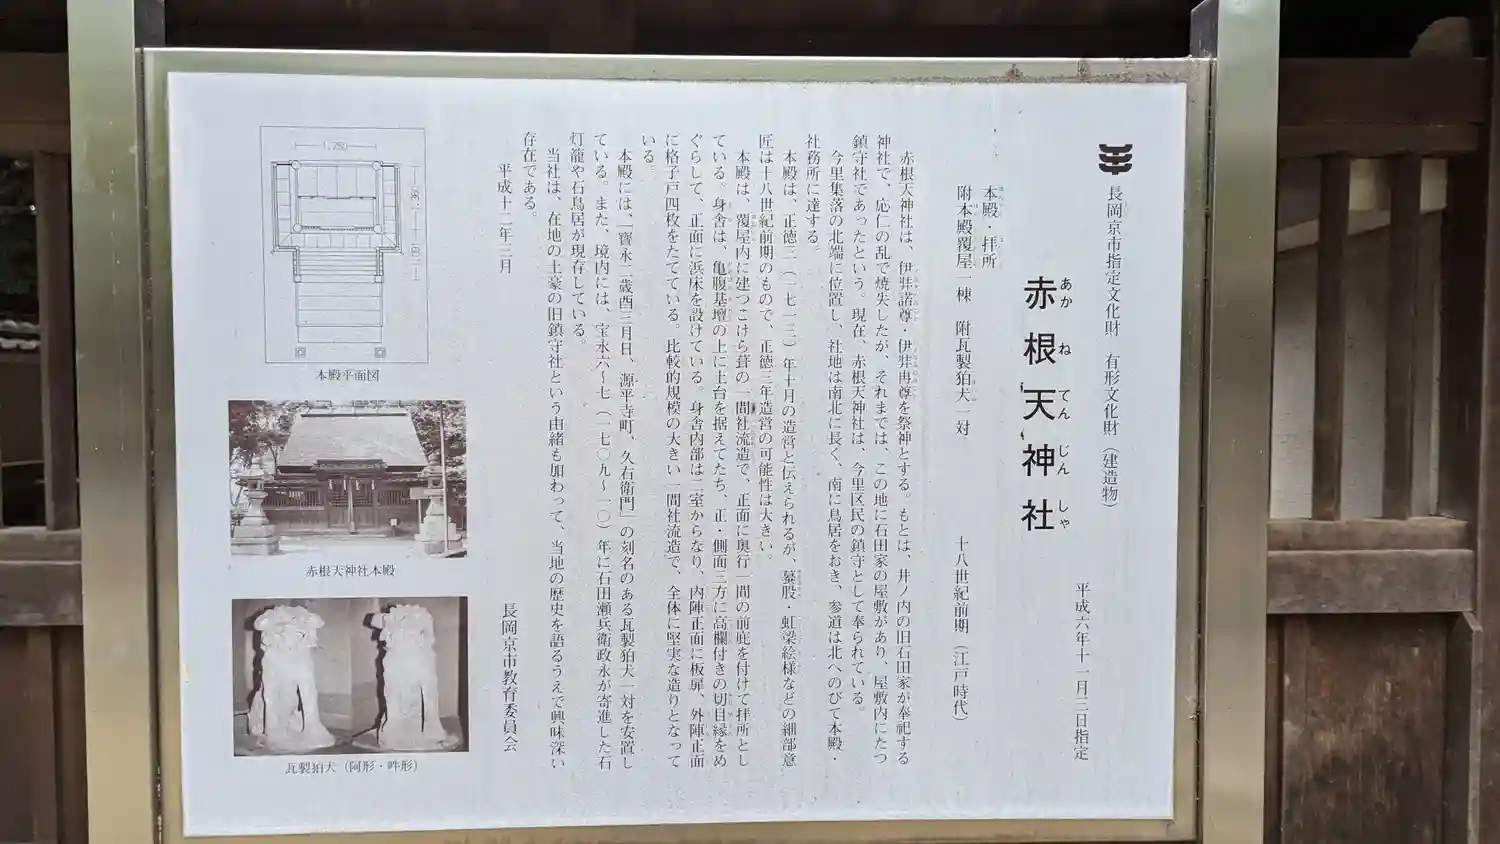 長岡京市指定文化財　有形文化財（建造物）
平成六年十一月二日指定
赤根天神社
あかねてんじんしゃ
本殿・拝所
附本殿覆屋一棟　附瓦製狛犬一対
十八世紀前期（江戸時代）
赤根天神社は、伊弉諾尊・伊弉冉尊を祭神とする。もとは、井ノ内の旧石田家が奉祀する
神社で、応仁の乱で焼失したが、それまでは、この地に石田家の屋敷があり、屋敷内にたつ
鎮守社であったという。現在、赤根天神社は、今里区民の鎮守として奉られている。
今里集落の北端に位置し、社地は南北に長く、南に鳥居をおき、参道は北へのびて本殿・
社務所に達する。
本殿は、正徳三（一七一三）年十月の造営と伝えられるが、蟇股・虹梁絵様などの細部意
匠は十八世紀前期のもので、正徳三年造営の可能性は大きい。
本殿は、覆屋内に建つこけら葺の一間社流造で、正面に奥行一間の前庇を付けて拝所とし
ている。身舎は、亀腹基壇の上に土台を据えてたち、正・側面三方に高欄付きの切目縁をめ
ぐらして、正面に浜床を設けている。身舎内部は二室からなり、内陣正面に板扉、外陣正面
に格子戸四枚をたてている。比較的規模の大きい一間社流造で、全体に堅実な造りとなって
いる。
本殿には、「寳永二歳酉三月日、源平寺町、久右衛門」の刻名のある瓦製狛犬一対を安置し
ている。また、境内には、宝永六～七（一七〇九～一〇）年に石田瀬兵衛政永が寄進した石
灯籠や石鳥居が現存している。
当社は、在地の土豪の旧鎮守社という由緒も加わって、当地の歴史を語るうえで興味深い
存在である。
平成十二年三月
長岡京市教育委員会
1,750
本殿平面図
赤根天神社本殿
瓦製狛犬（阿形・吽形）